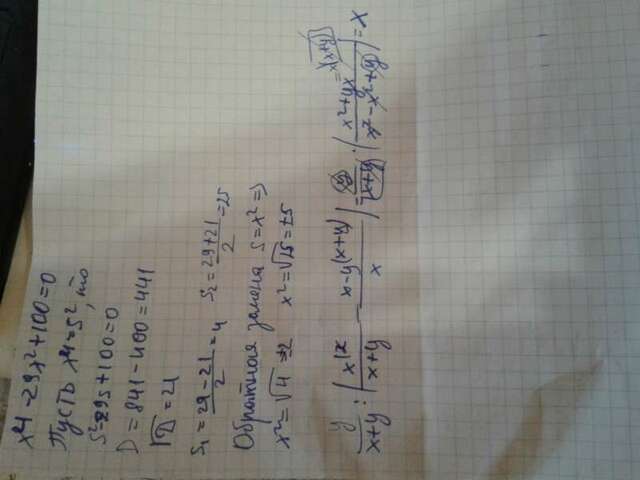 x⁴-29x²+100=0
Пусть x⁴=s², то
s²-29s+100=0
D=841-400=441
√D=21
s₁=(29-21)/2=4 s₂=(29+21)/2=25
Обратная замена s=x² ⇒
x²=√4=±2 x²=√25=±5
y/(x+y) :
x-y(x+y)
x
x²+yx
=x(x+y)
=x